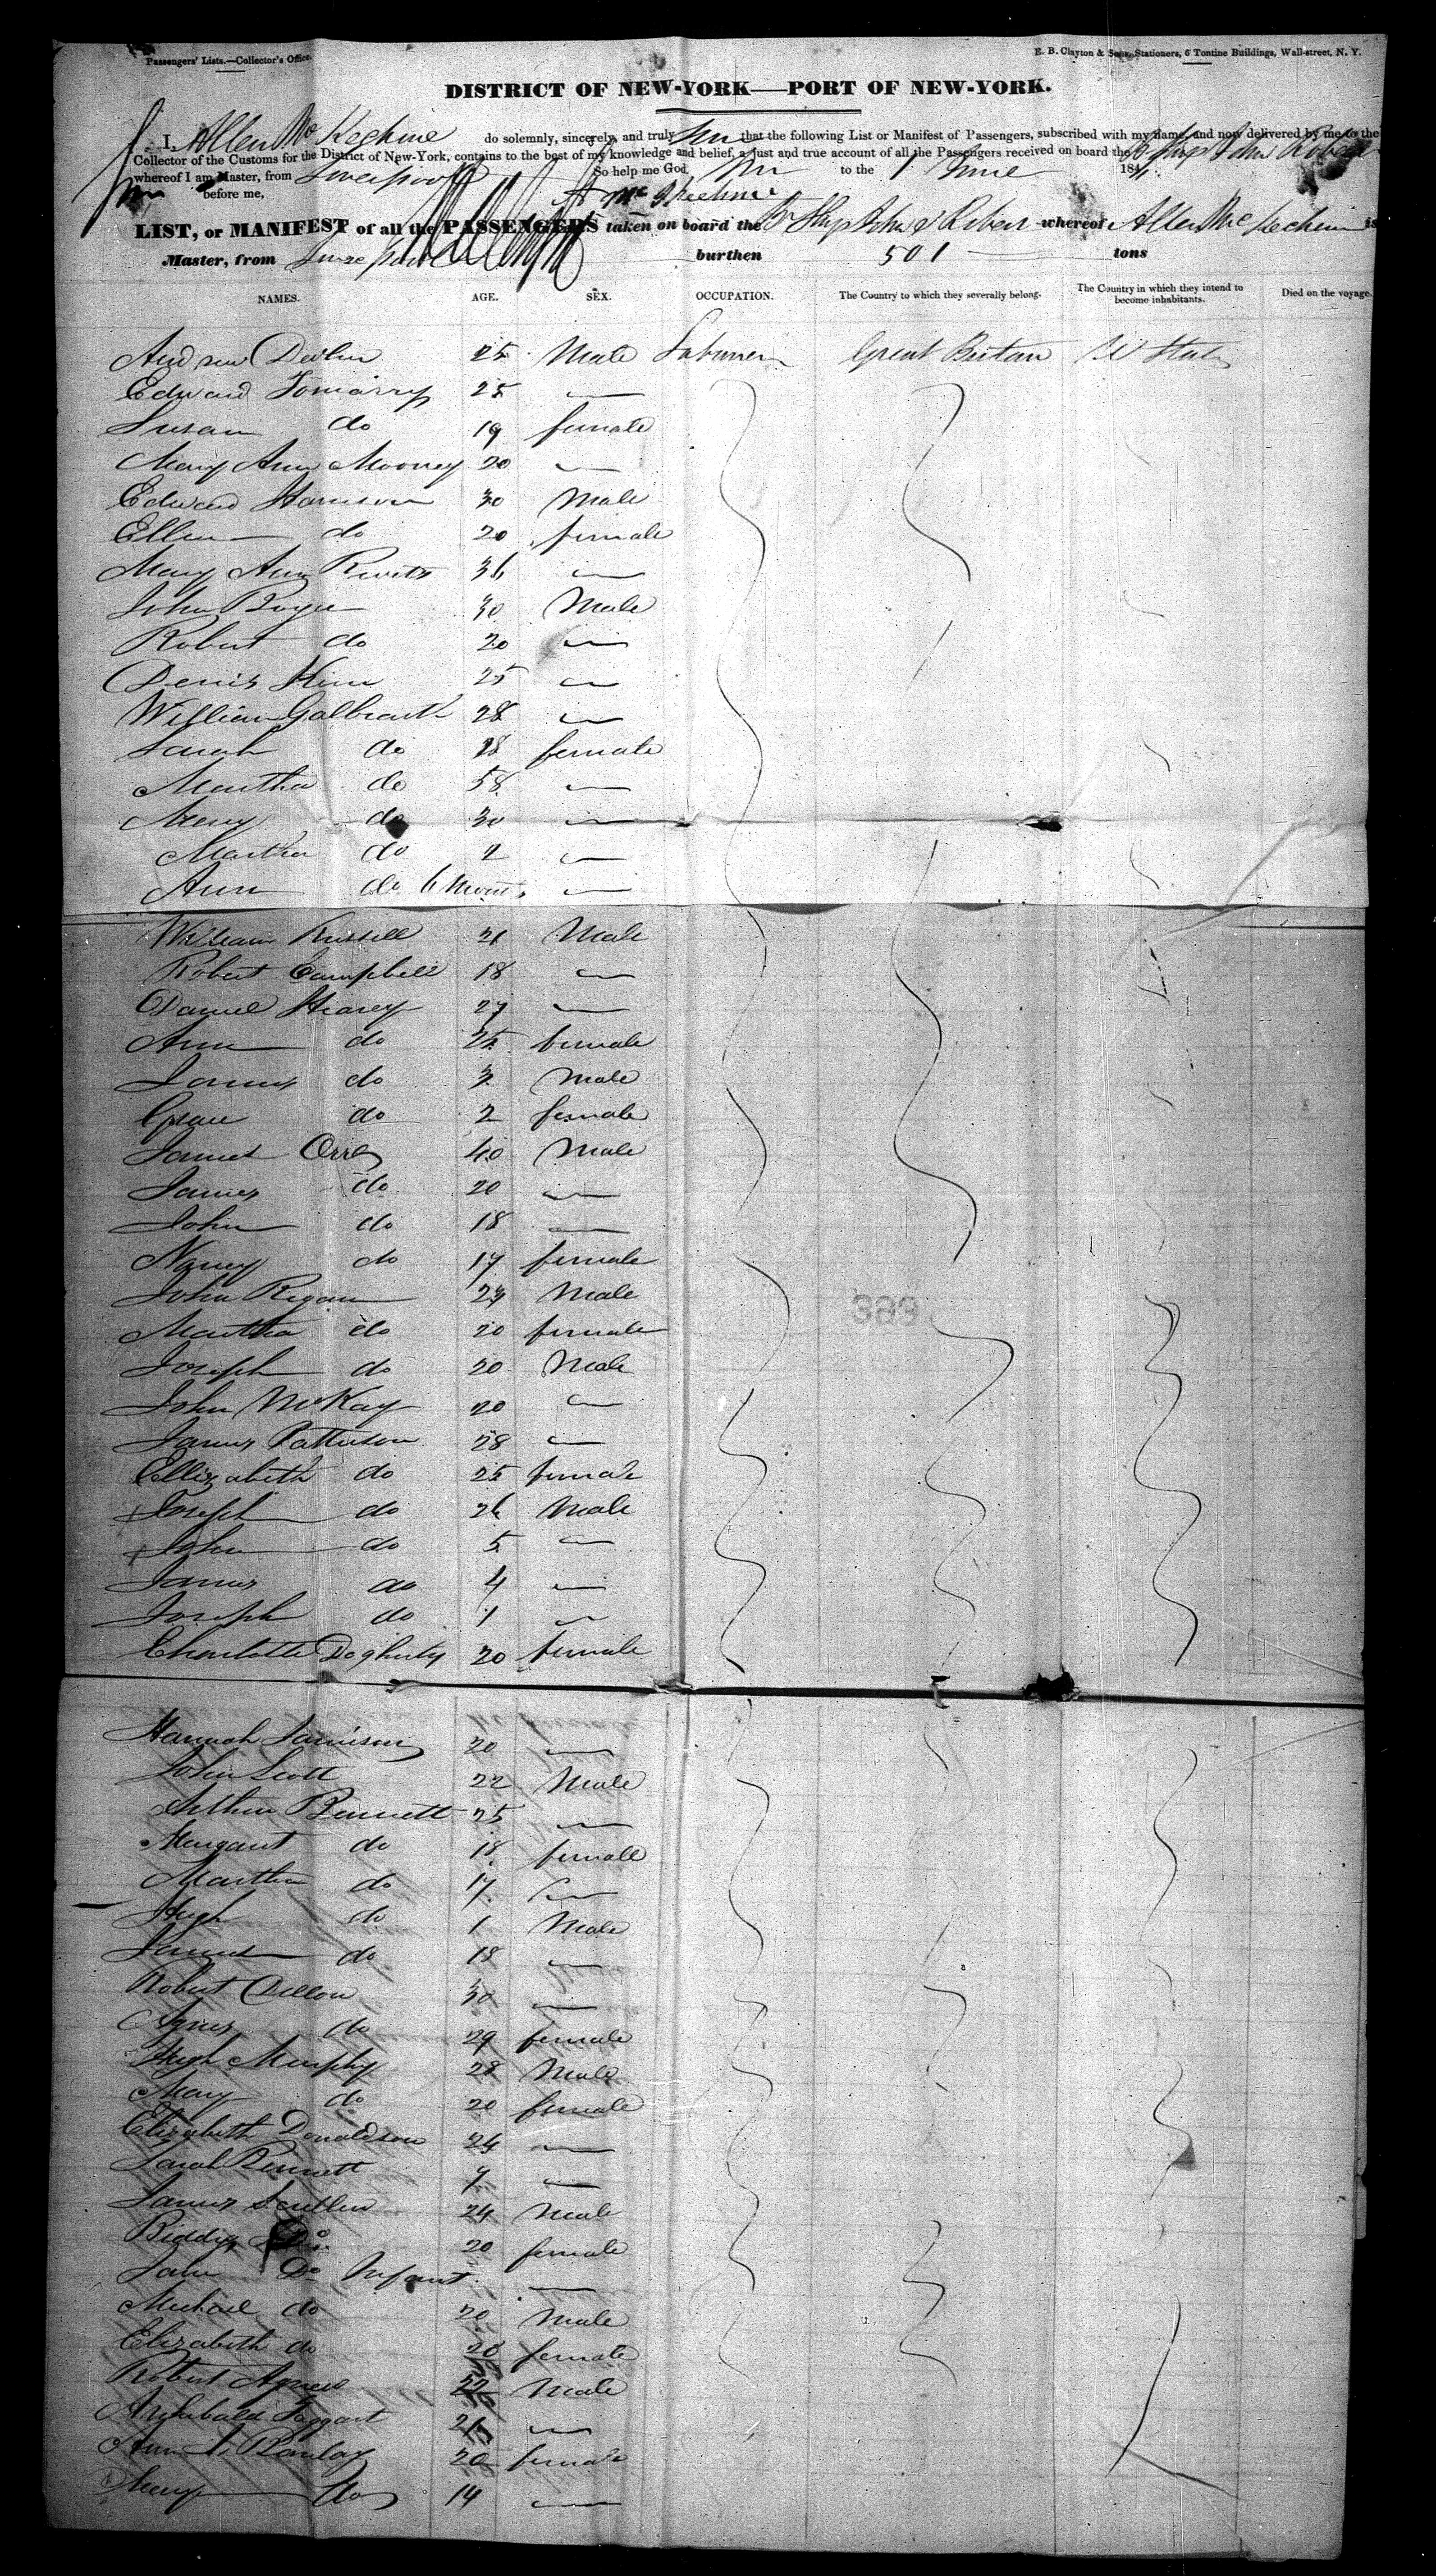 Passengers' Lists.—Collector's Office.
E. B. Clayton & Sons, Stationers, 6 Tontine Buildings, Wall-street, N. Y.
DISTRICT OF NEW-YORK—PORT OF NEW-YORK.
I, Allen Mc do solemnly, sincerely, and truly that the following List or Manifest of Passengers, subscribed with my name, and now delivered by me to the
Collector of the Customs for the District of New-York, contains to the best of my knowledge and belief, a just and true account of all the Passengers received on board the Ship John & Robert
whereof I am Master, from Liverpool So help me God.
to the 1 June 184
before me,
LIST, or MANIFEST of all the PASSENGERS taken on board the Br Ship John & Robert whereof Allen Mc is
Master, from Liverpool burthen 501 tons
NAMES. AGE. SEX. OCCUPATION. The Country to which they severally belong. The Country in which they intend to become inhabitants. Died on the voyage.
Andrew Devlin 25 Male Labourer Great Britain U States
Edward 25 —
Susan do 19 female
Mary Ann Mooney 20 —
Edward Harrison 30 Male
Ellen do 20 female
Mary Ann 36 —
John 30 Male
Robert do 20 —
Denis 25 —
William Galbraith 28 —
Sarah do 28 female
Martha do 58 —
Mary do 30 —
Martha do 2 —
Ann do 6 Mont. —
William Russell 21 Male
Robert Campbell 18 —
Daniel 27 —
Ann do 25 female
James do 3 Male
Grace do 2 female
James Orr 40 Male
James do 20 —
John do 18 —
Nancy do 17 female
John Regan 24 Male
Martha do 20 female
Joseph do 20 Male
John McKay 20 —
James Patterson 28 —
Ellizabeth do 25 female
Joseph do 26 Male
John do 5 —
James do 4 —
Joseph do 1 —
Charlotte Dogherty 20 female
Hannah Jamison 20 —
John Scott 22 Male
Arthur Bennett 25 —
Margaret do 18 female
Martha do 17 —
Hugh do 1 Male
James do 18 —
Robert Dillon 30 —
Agnes do 29 female
Hugh Murphy 28 Male
Mary do 20 female
Elizabeth Donaldson 24 —
Sarah Bennett 7 —
James Scullin 24 Male
Biddy Do 20 female
Jane Do Infant —
Michael do 20 Male
Elizabeth do 20 female
Robert Agnew 22 Male
Archibald Taggart 21 —
Ann J. Barclay 20 female
Mary do 14 —